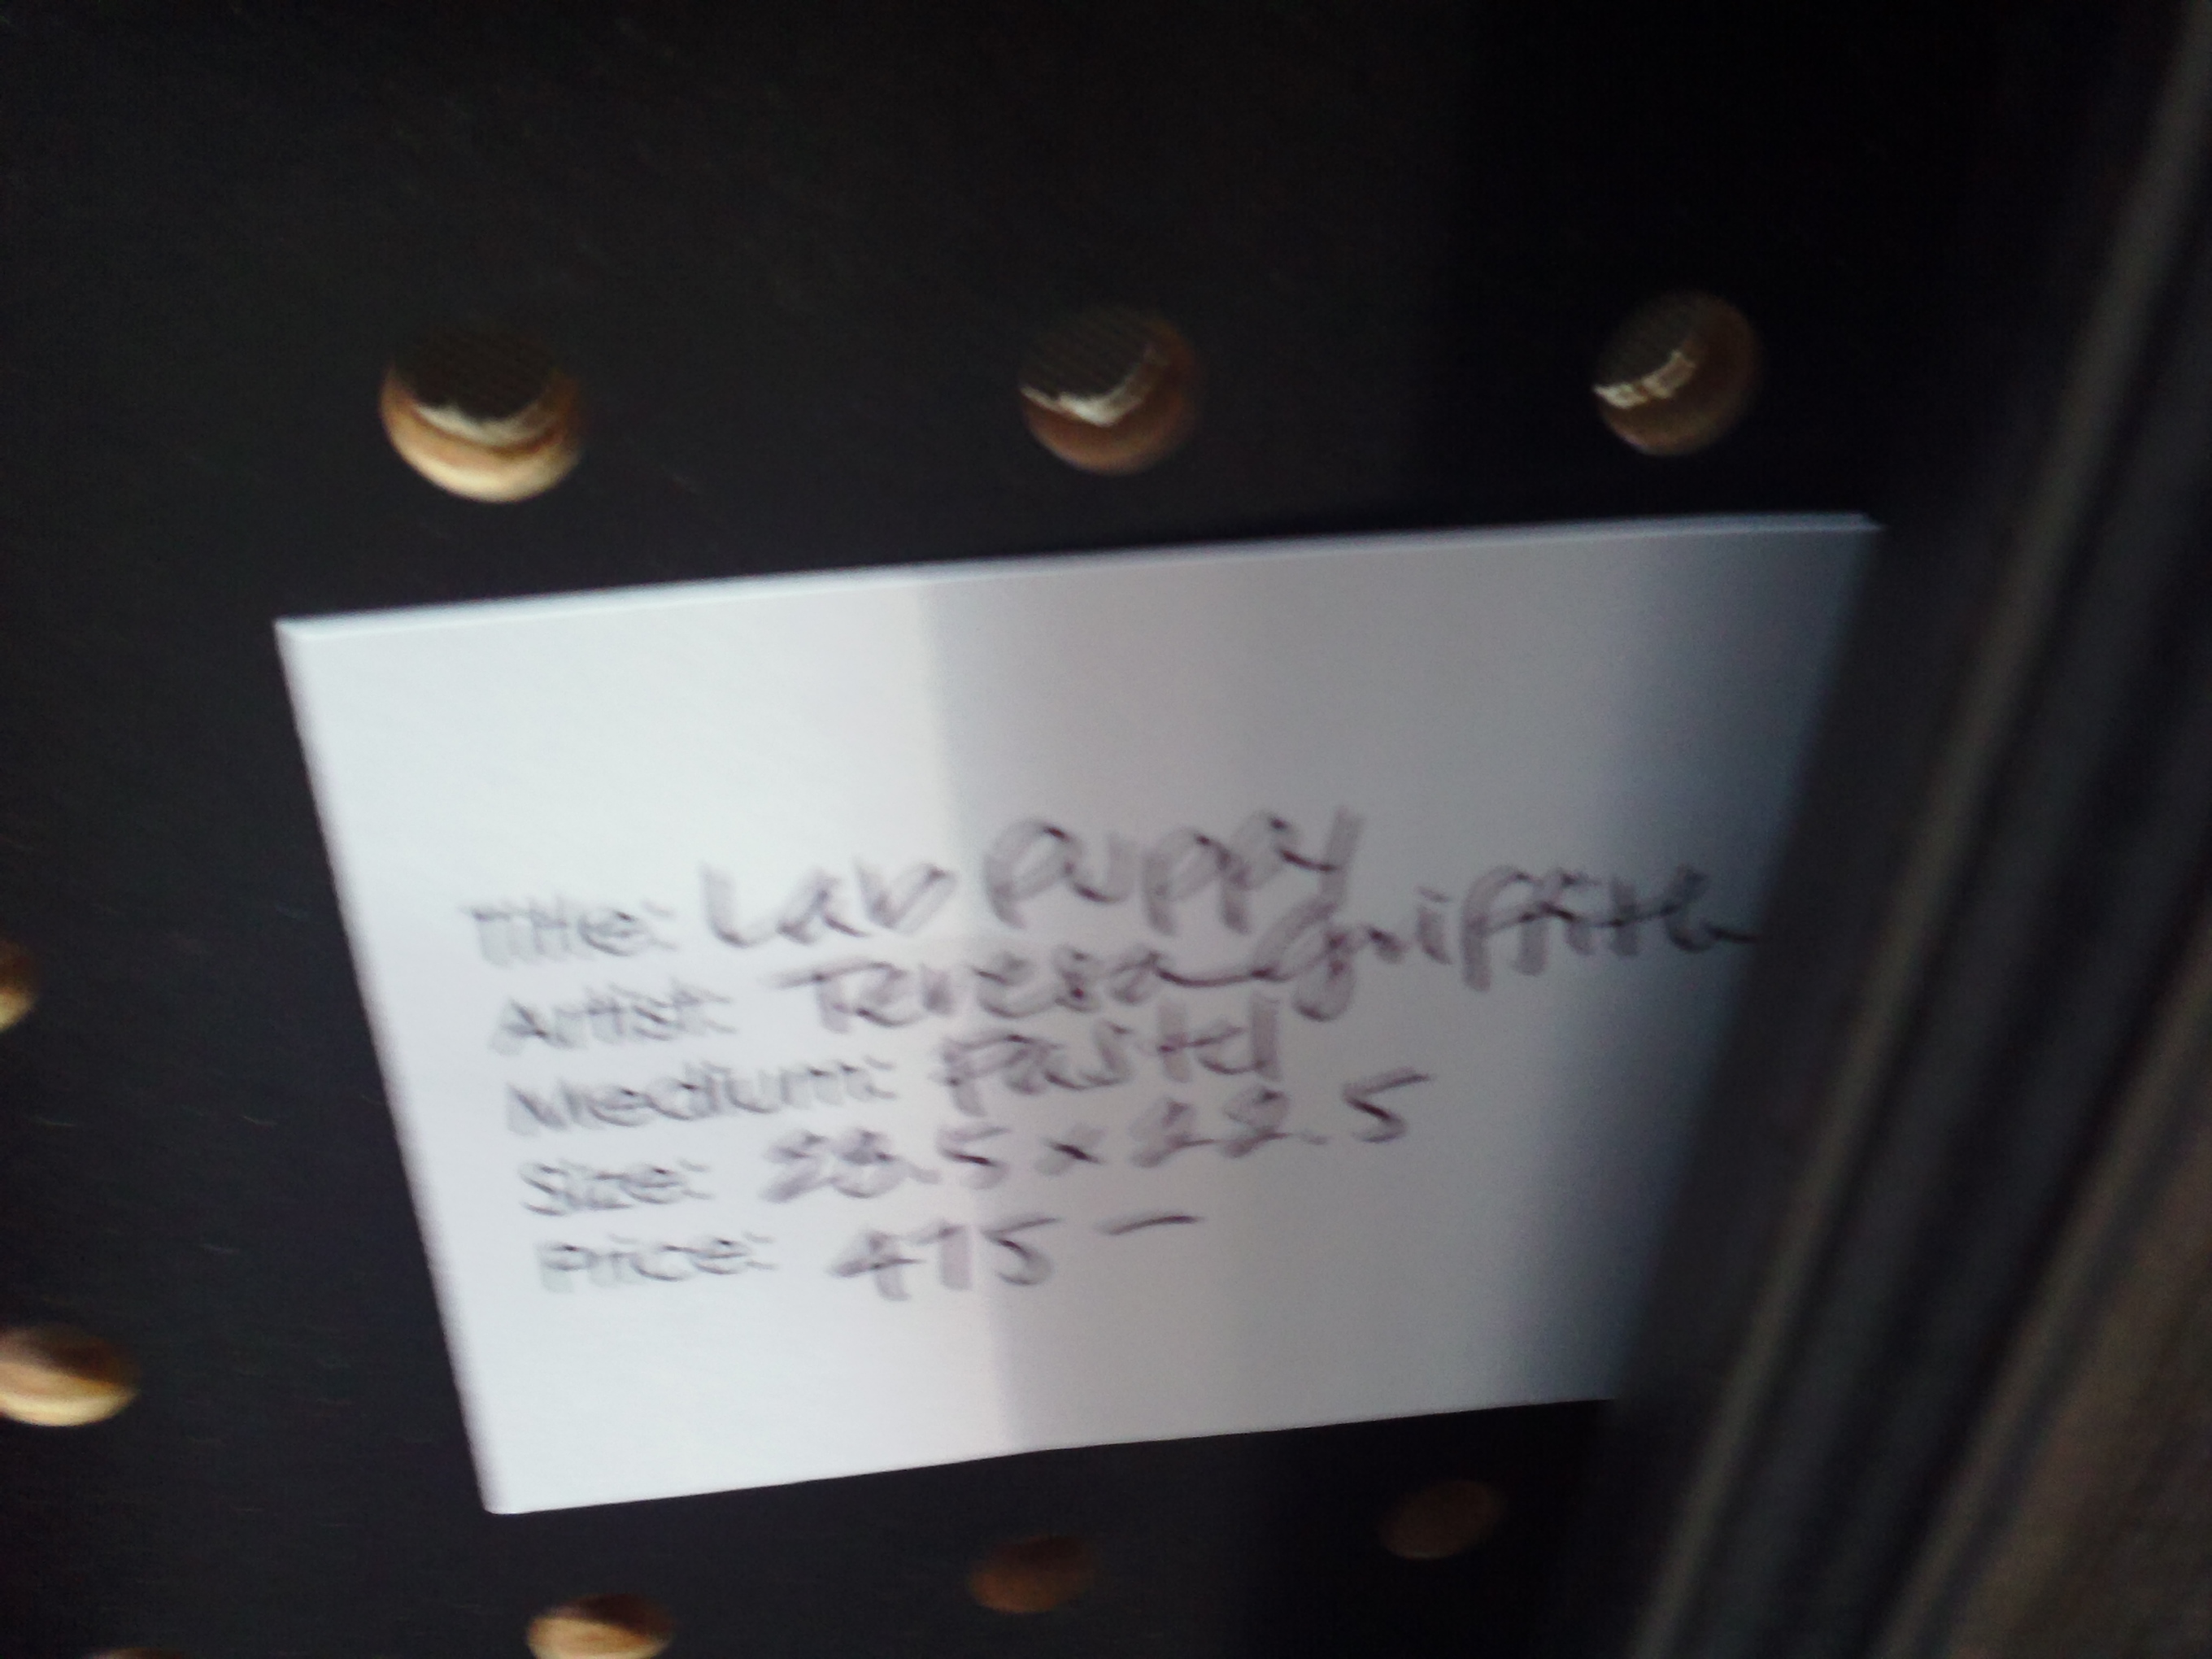 Title: Lab Puppy
Artist: Teresa Griffith
Medium: Pastel
Size: 28.5 x 22.5
Price: 475 —